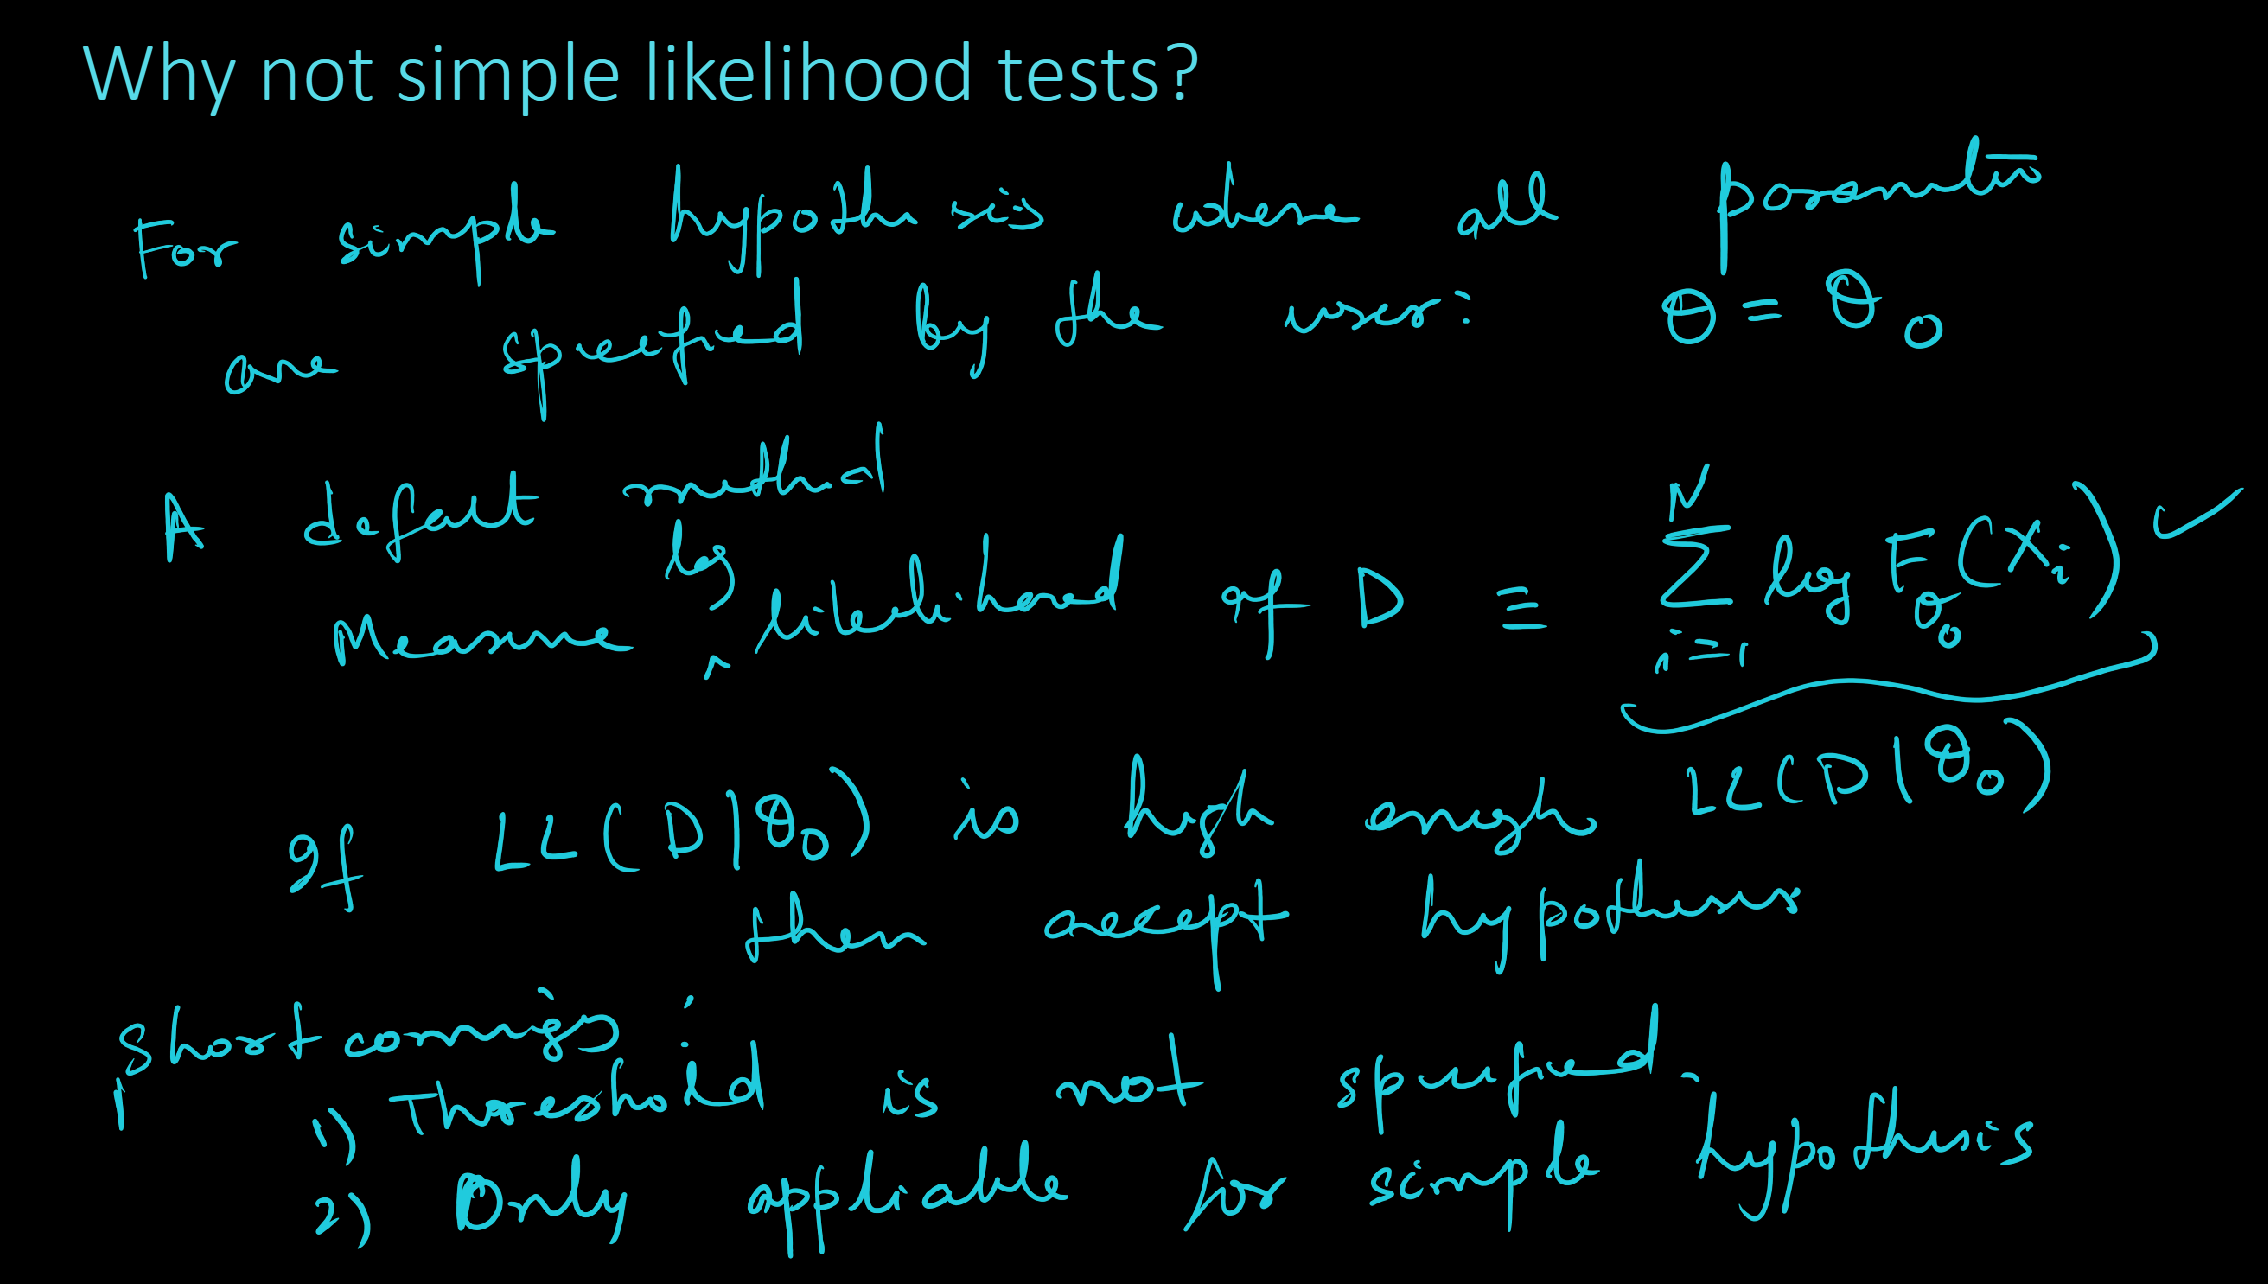 Why not simple likelihood tests?
For simple hypothesis where all parameters
are specified by the user: θ = θ₀
A default method
Measure ‸ log likelihood of D ≡ ∑_{i=1}^{N} log F_{θ₀}(Xᵢ) ✓
LL(D|θ₀)
If LL(D|θ₀) is high enough
then accept hypothesis
Shortcomings :
1) Threshold is not specified.
2) Only appliable for simple hypothesis